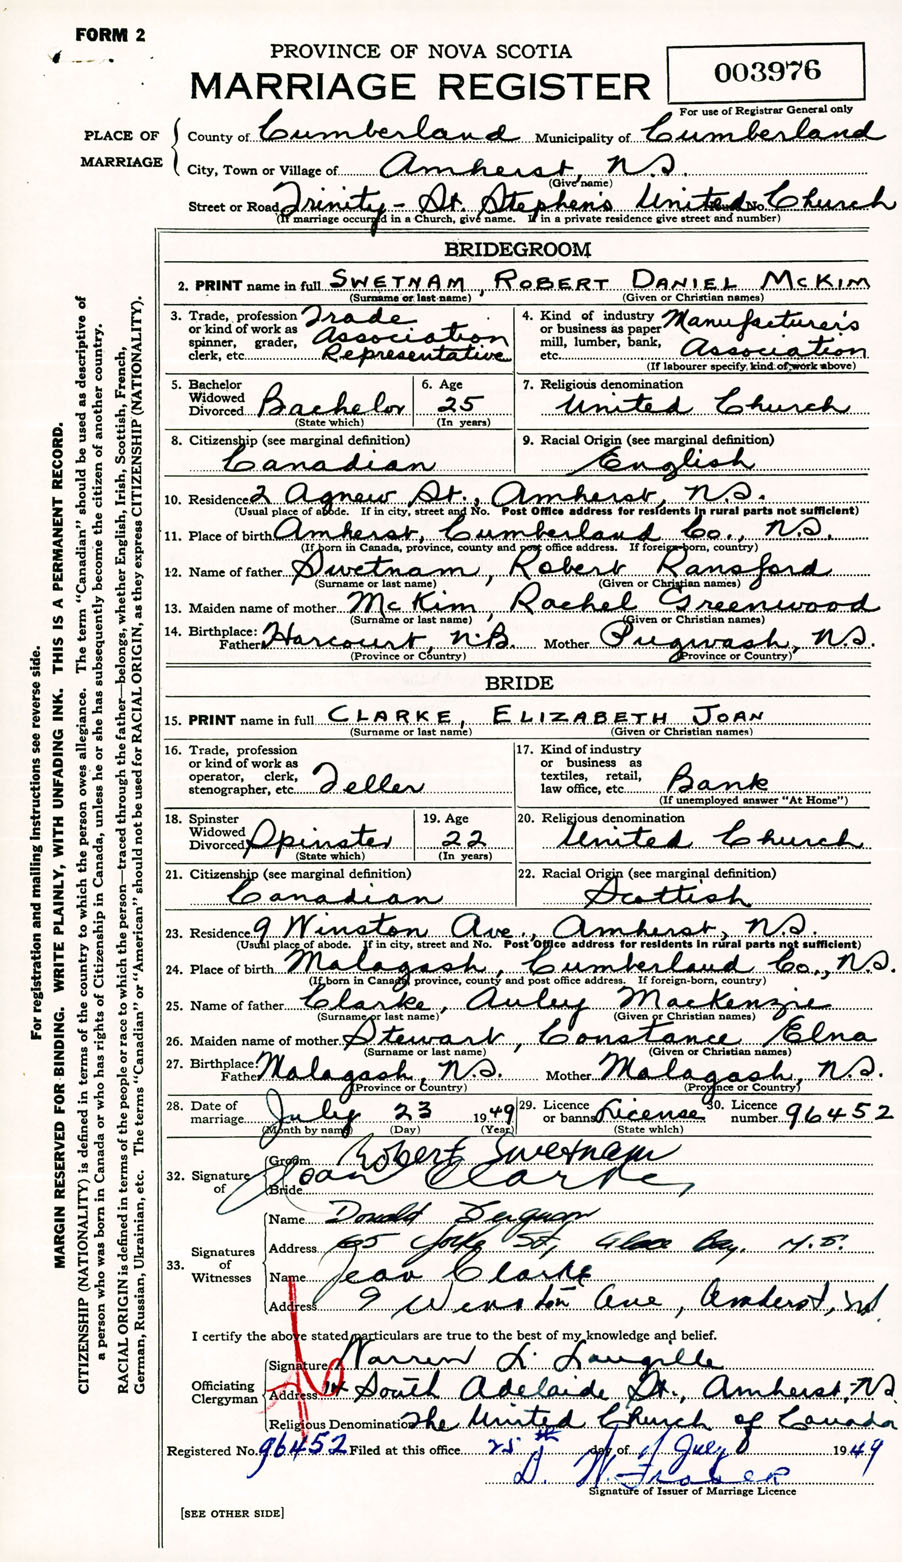 FORM 2
PROVINCE OF NOVA SCOTIA
MARRIAGE REGISTER
003976
For use of Registrar General only
PLACE OF MARRIAGE
County of Cumberland Municipality of Cumberland
City, Town or Village of Amherst, N.S.
(Give name)
Street or Road Trinity - St. Stephen's United Church No.
(If marriage occurred in a Church, give name. If in a private residence give street and number)
BRIDEGROOM
2. PRINT name in full SWETNAM, ROBERT DANIEL MCKIM
(Surname or last name) (Given or Christian names)
3. Trade, profession or kind of work as spinner, grader, clerk, etc. Trade Association Representative
4. Kind of industry or business as paper mill, lumber, bank, etc. Manufacturer's Association
(If labourer specify kind of work above)
5. Bachelor Widowed Divorced Bachelor
(State which)
6. Age 25
(In years)
7. Religious denomination
United Church
8. Citizenship (see marginal definition)
Canadian
9. Racial Origin (see marginal definition)
English
10. Residence 2 Agnew St., Amherst, N.S.
(Usual place of abode. If in city, street and No. Post Office address for residents in rural parts not sufficient)
11. Place of birth Amherst, Cumberland Co., N.S.
(If born in Canada, province, county and post office address. If foreign-born, country)
12. Name of father Swetnam, Robert Ransford
(Surname or last name) (Given or Christian names)
13. Maiden name of mother McKim, Rachel Greenwood
(Surname or last name) (Given or Christian names)
14. Birthplace: Father Harcourt, N.B. Mother Pugwash, N.S.
(Province or Country) (Province or Country)
BRIDE
15. PRINT name in full CLARKE, ELIZABETH JOAN
(Surname or last name) (Given or Christian names)
16. Trade, profession or kind of work as operator, clerk, stenographer, etc. Teller
17. Kind of industry or business as textiles, retail, law office, etc. Bank
(If unemployed answer "At Home")
18. Spinster Widowed Divorced Spinster
(State which)
19. Age 22
(In years)
20. Religious denomination
United Church
21. Citizenship (see marginal definition)
Canadian
22. Racial Origin (see marginal definition)
Scottish
23. Residence 9 Winston Ave., Amherst, N.S.
(Usual place of abode. If in city, street and No. Post Office address for residents in rural parts not sufficient)
24. Place of birth Malagash, Cumberland Co., N.S.
(If born in Canada, province, county and post office address. If foreign-born, country)
25. Name of father Clarke, Auley Mackenzie
(Surname or last name) (Given or Christian names)
26. Maiden name of mother Stewart, Constance Elna
(Surname or last name) (Given or Christian names)
27. Birthplace: Father Malagash, N.S. Mother Malagash, N.S.
(Province or Country) (Province or Country)
28. Date of marriage July 23 1949
(Month by name) (Day) (Year)
29. Licence or banns License
(State which)
30. Licence number 96452
32. Signature of
Groom Robert Swetnam
Bride Joan Clarke
33. Signatures of Witnesses
Name Donald Ferguson
Address 65 York St, Glace Bay, N.S.
Name Jean Clarke
Address 9 Winston Ave, Amherst, NS
I certify the above stated particulars are true to the best of my knowledge and belief.
Officiating Clergyman
Signature Warren L. Langille
Address South Adelaide St., Amherst, N.S.
Religious Denomination The United Church of Canada
Registered No. 96452 Filed at this office 25th day of July 1949
D. W. Fraser
Signature of Issuer of Marriage Licence
[SEE OTHER SIDE]
For registration and mailing instructions see reverse side.
MARGIN RESERVED FOR BINDING. WRITE PLAINLY, WITH UNFADING INK. THIS IS A PERMANENT RECORD.
CITIZENSHIP (NATIONALITY) is defined in terms of the country to which the person owes allegiance. The term "Canadian" should be used as descriptive of
a person who was born in Canada or who has rights of Citizenship in Canada, unless he or she has subsequently become the citizen of another country.
RACIAL ORIGIN is defined in terms of the people or race to which the person—traced through the father—belongs, whether English, Irish, Scottish, French,
German, Russian, Ukrainian, etc. The terms "Canadian" or "American" should not be used for RACIAL ORIGIN, as they express CITIZENSHIP (NATIONALITY).